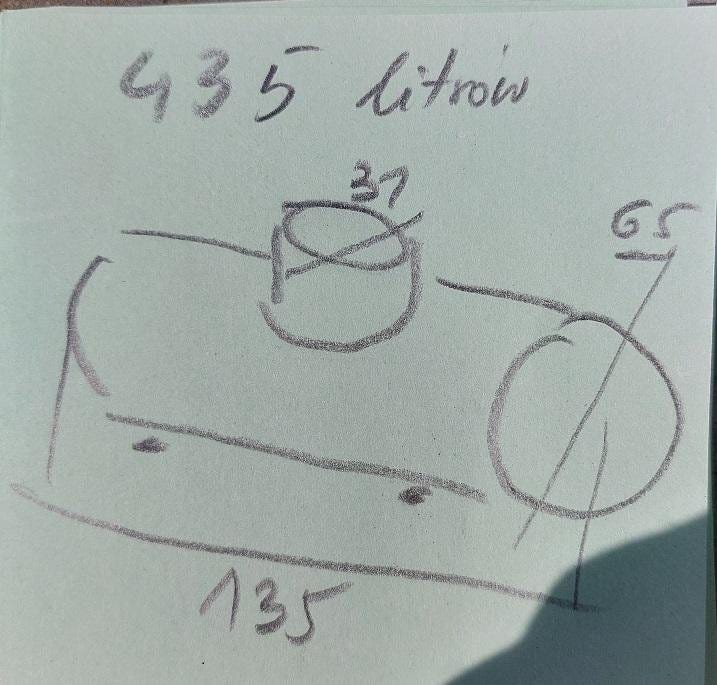 435 litrów
31
65
135